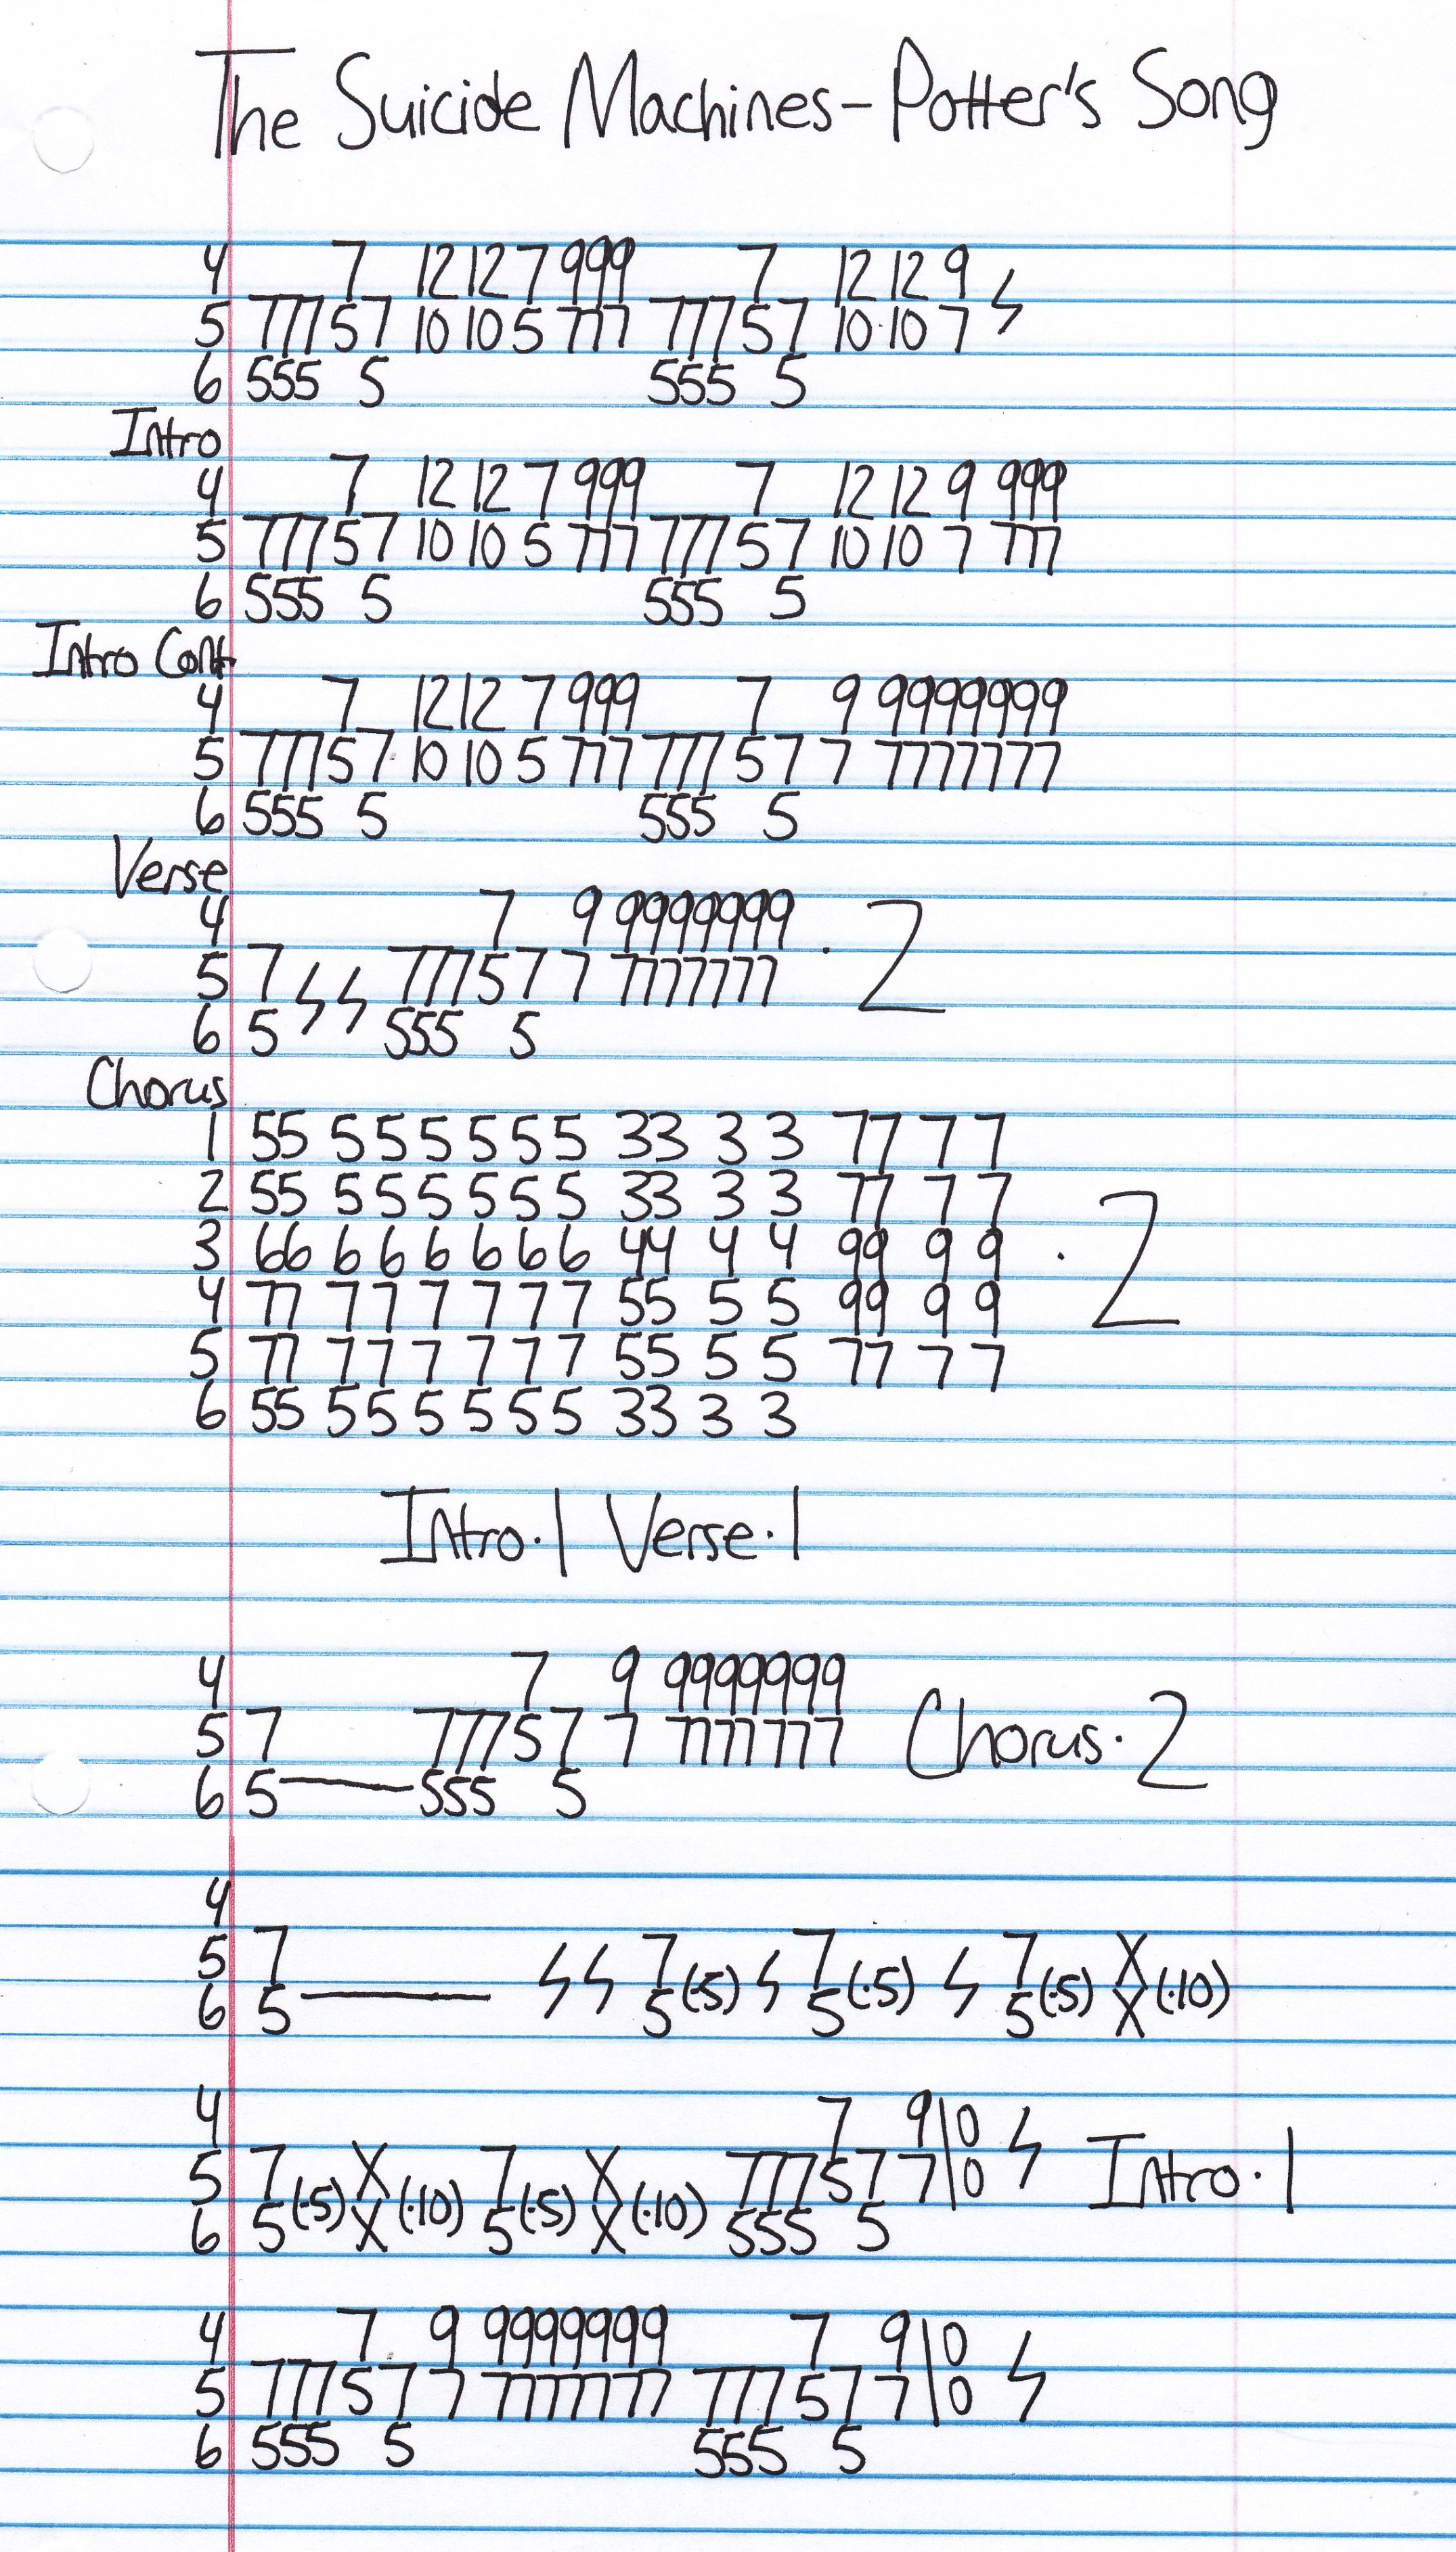 The Suicide Machines - Potter's Song
4 7 12 12 7 999 7 12 12 9
5 777 5 7 10 10 5 777 777 5 7 10 10 7
6 555 5 555 5
Intro
4 7 12 12 7 999 7 12 12 9 999
5 777 5 7 10 10 5 777 777 5 7 10 10 7 777
6 555 5 555 5
Intro Cont.
4 7 12 12 7 999 7 9 9999999
5 777 5 7 10 10 5 777 777 5 7 7 7777777
6 555 5 555 5
Verse
4 7 9 9999999 · 2
5 7 777 5 7 7 7777777
6 5 555 5
Chorus
1 55 5 5 5 5 5 5 33 3 3 77 7 7
2 55 5 5 5 5 5 5 33 3 3 77 7 7
3 66 6 6 6 6 6 6 44 4 4 99 9 9 · 2
4 77 7 7 7 7 7 7 55 5 5 99 9 9
5 77 7 7 7 7 7 7 55 5 5 77 7 7
6 55 5 5 5 5 5 5 33 3 3
Intro·1 Verse·1
4 7 9 9999999
5 7 777 5 7 7 7777777 Chorus·2
6 5 — 555 5
4
5 7 7 7 7 X
6 5 — 5(·5) 5(·5) 5(·5) X(·10)
4 7 9\0
5 7 X 7 X 777 5 7 7\0 Intro·1
6 5(·5) X(·10) 5(·5) X(·10) 555 5
4 7 9 9999999 7 9\0
5 777 5 7 7 7777777 777 5 7 7\0
6 555 5 555 5